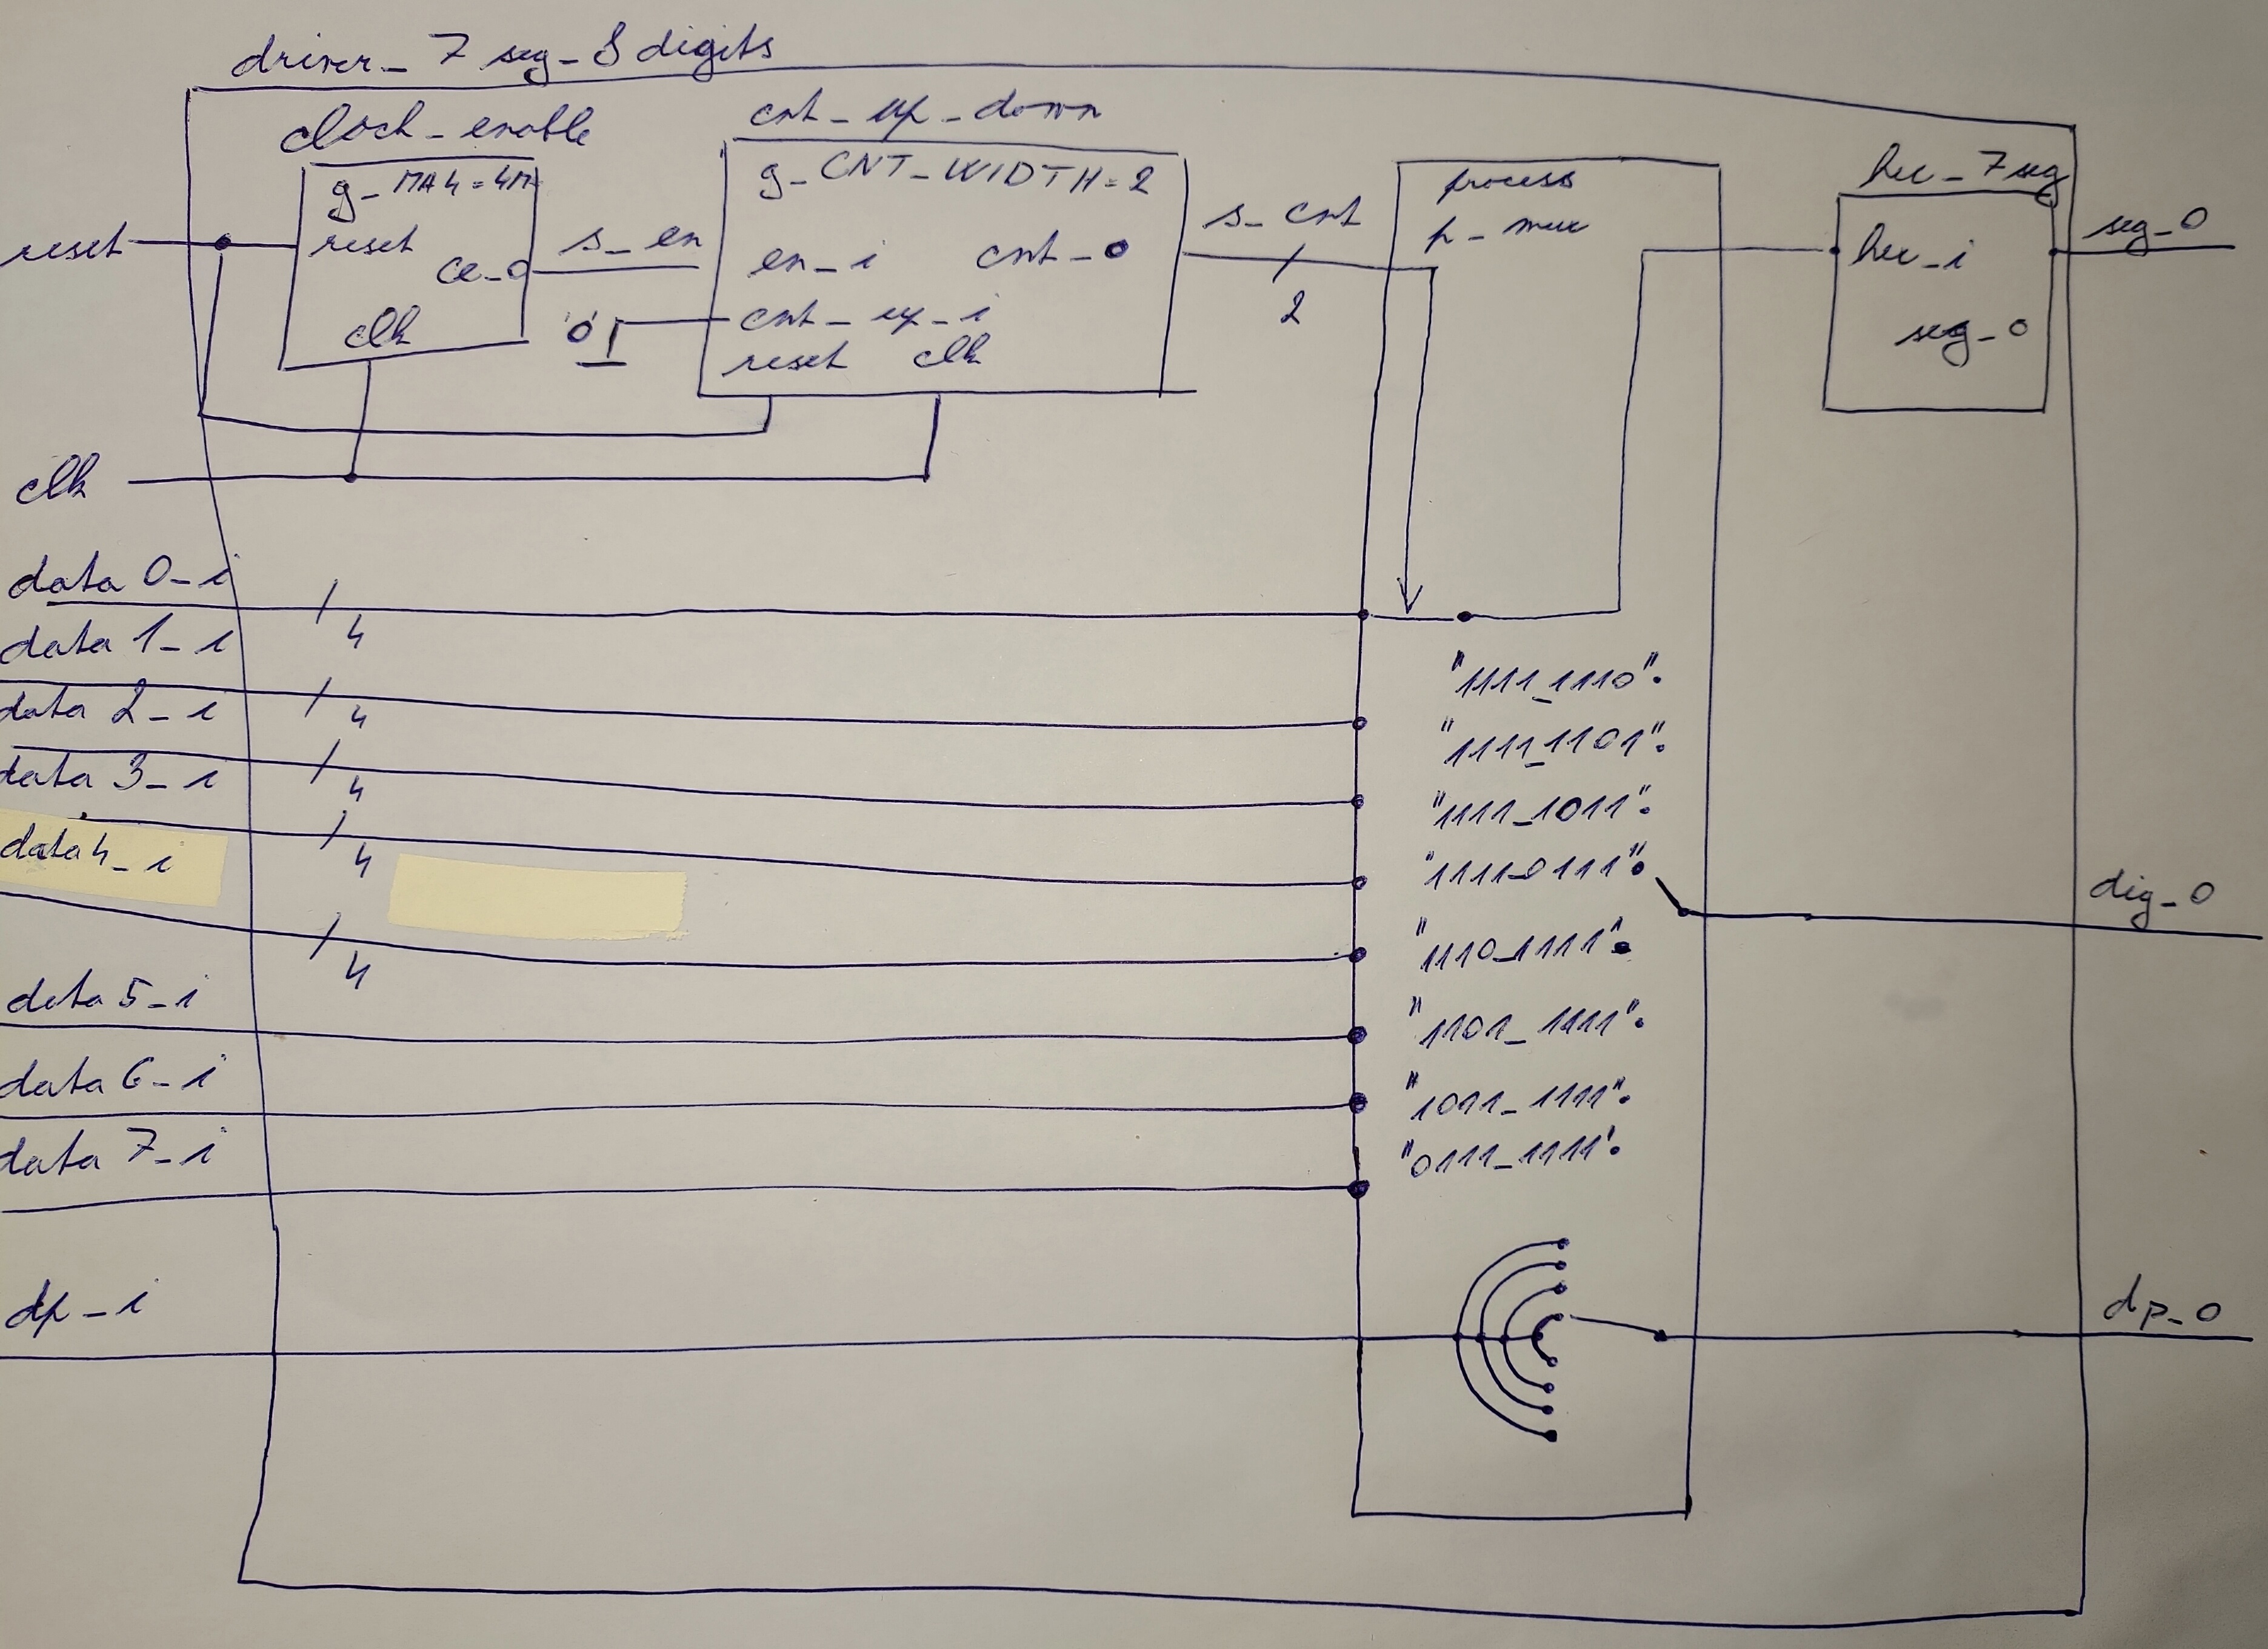 driver_7seg_8digits
clock_enable
cnt_up_down
hex_7seg
g_MAX=4M
reset
ce_o
clk
s_en
'0'
g_CNT_WIDTH=2
en_i cnt_o
cnt_up_i
reset clk
s_cnt
2
process
p_mux
hex_i
seg_o
seg_o
reset
clk
data0_i
4
data1_i
4
data2_i
4
data3_i
4
data4_i
4
data5_i
data6_i
data7_i
dp_i
"1111_1110"
"1111_1101"
"1111_1011"
"1111_0111"
"1110_1111"
"1101_1111"
"1011_1111"
"0111_1111"
dig_o
dp_o